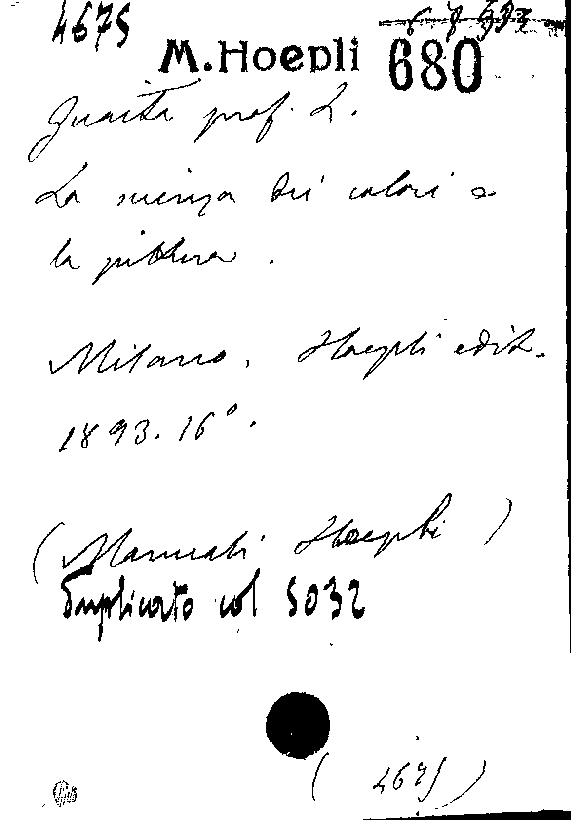 4675
M. Hoepli 680
Guaita prof. L.
La scienza dei colori e
la pittura.
Milano, Hoepli edit.
1893. 16°.
(Manuali Hoepli)
Duplicato col 5032
(4675)